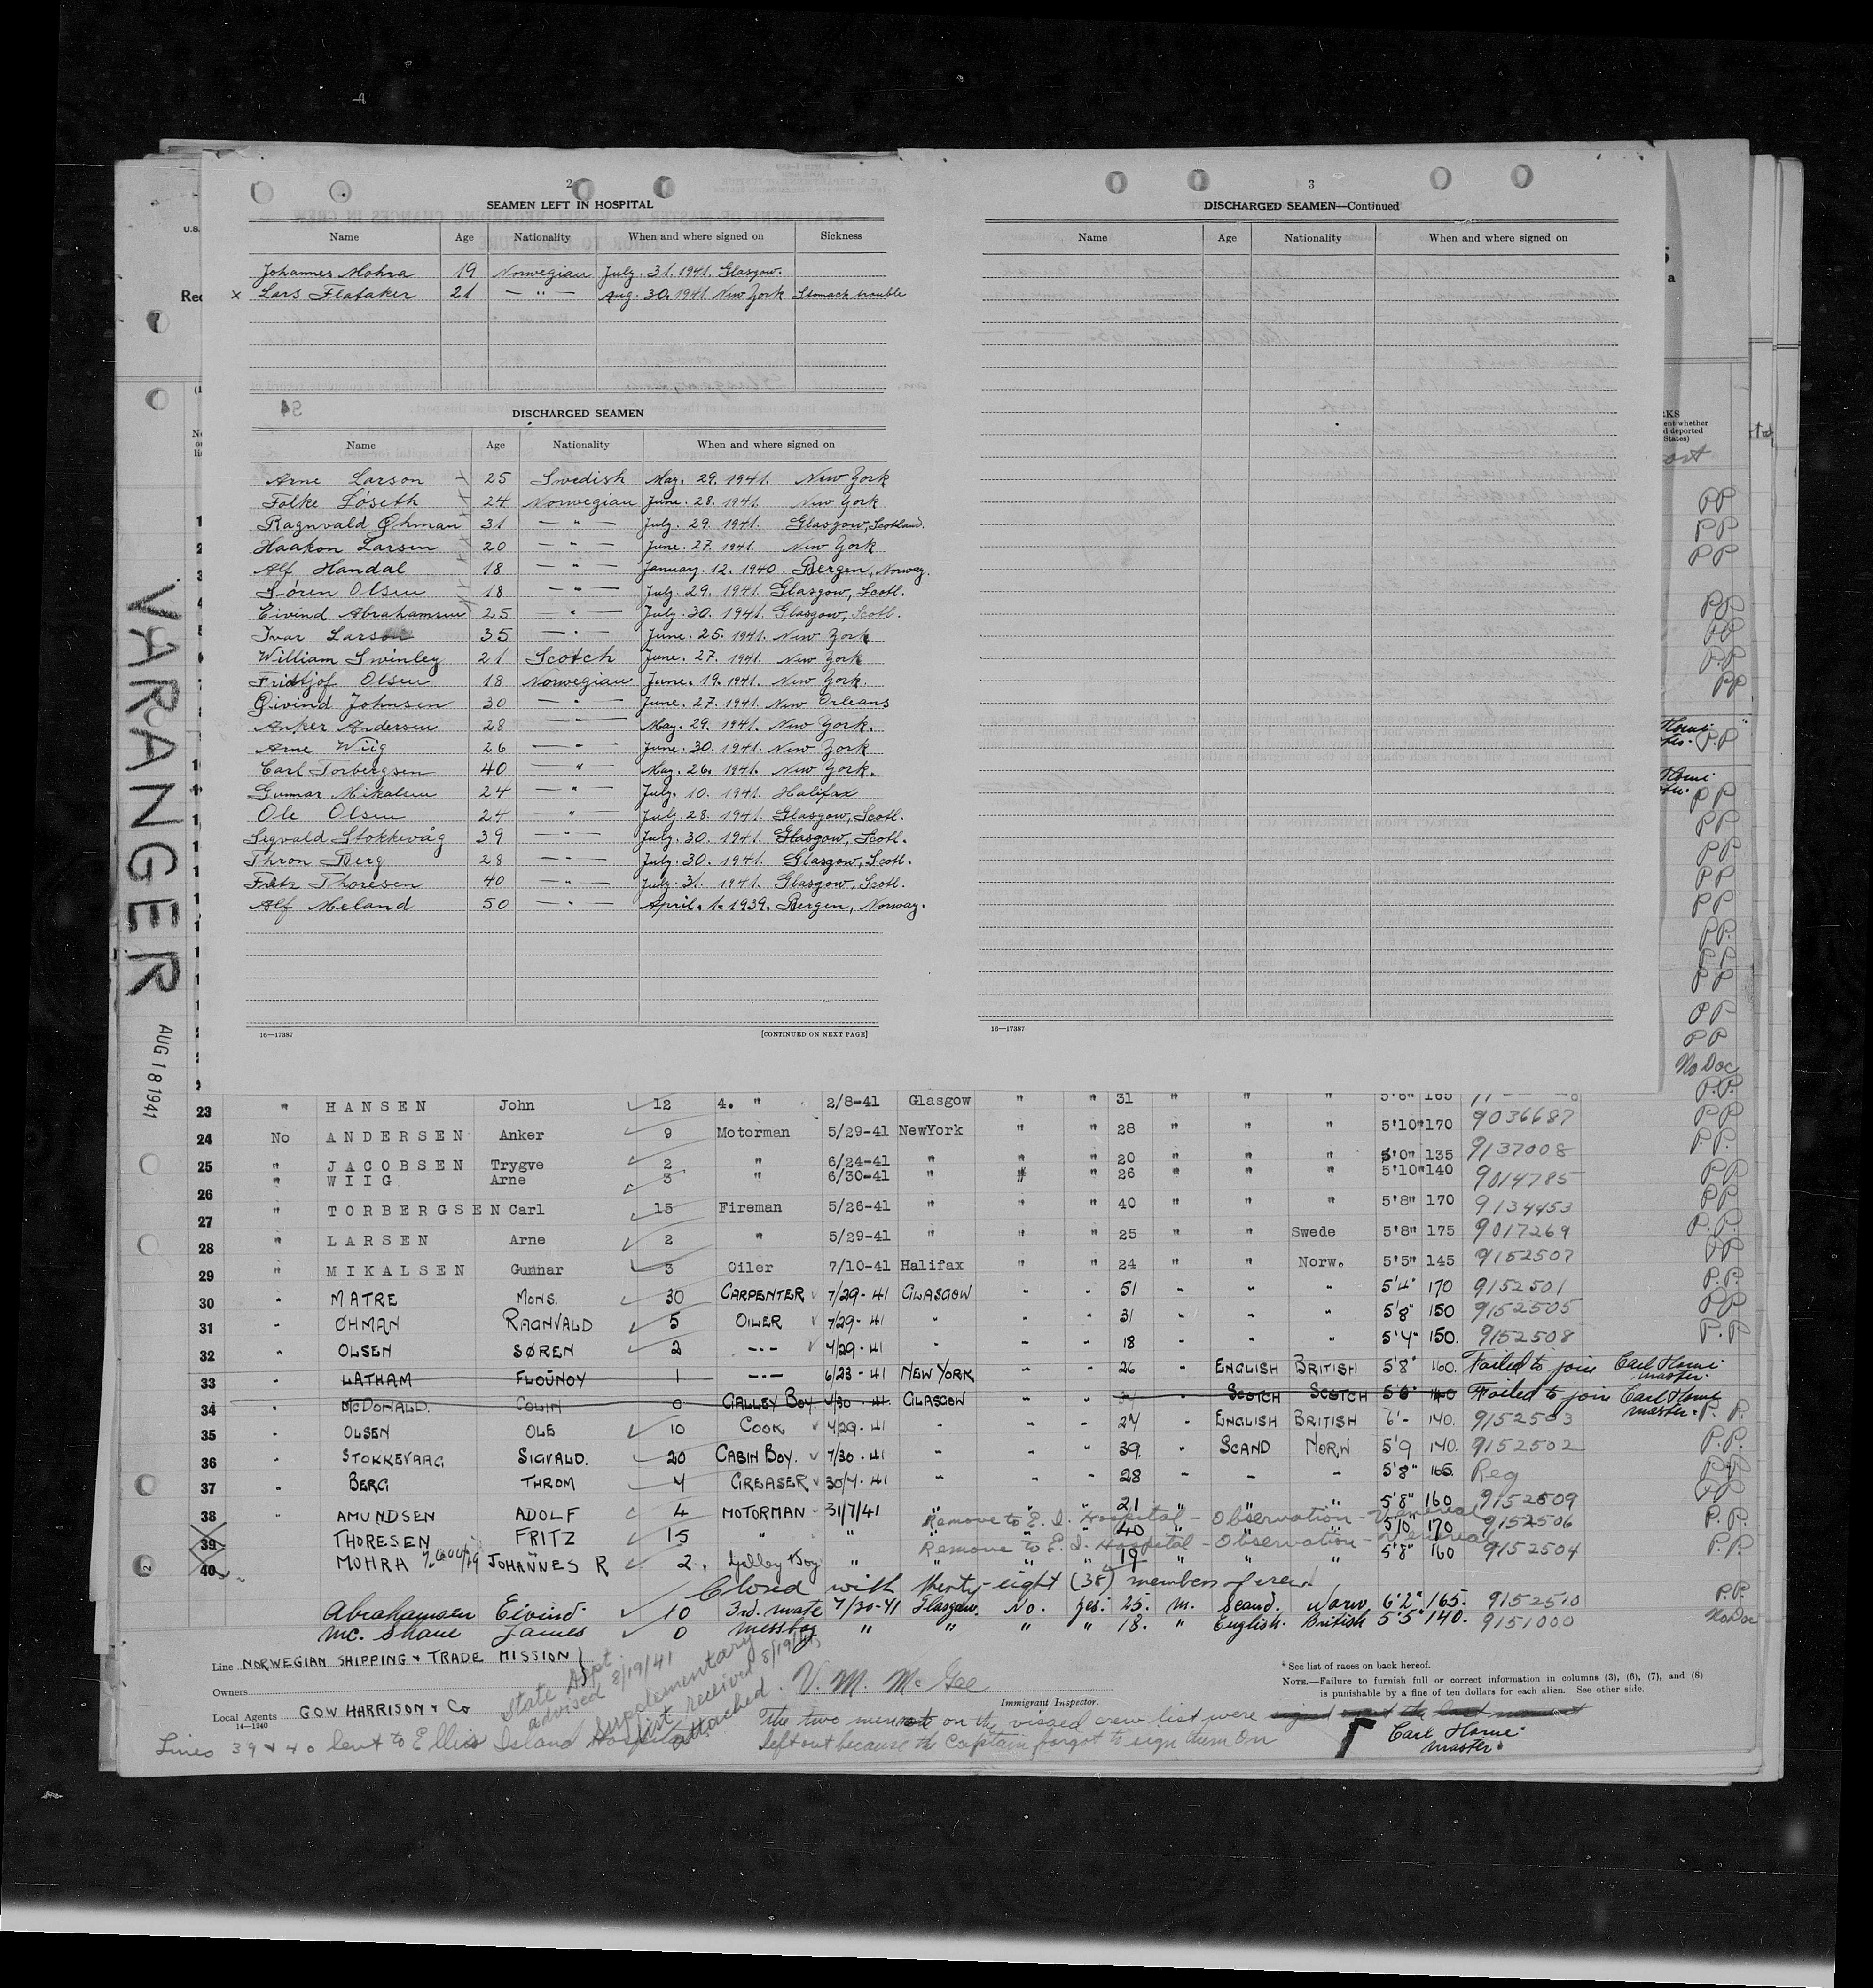 2
SEAMEN LEFT IN HOSPITAL
Name Age Nationality When and where signed on Sickness
Johannes Mohra 19 Norwegian July. 31. 1941. Glasgow.
x Lars Flataker 21 — " — Aug. 30. 1941. New York Stomach trouble
DISCHARGED SEAMEN
Name Age Nationality When and where signed on
Arne Larson 25 Swedish May. 29. 1941. New York
Folke Løseth 24 Norwegian June. 28. 1941. New York
Ragnvald Øhman 31 — " — July. 29. 1941. Glasgow, Scotland.
Haakon Larsen 20 — " — June. 27. 1941. New York
Alf Handal 18 — " — January. 12. 1940. Bergen, Norway.
Søren Olsen 18 — " — July. 29. 1941. Glasgow, Scotl.
Eivind Abrahamsen 25 — " — July. 30. 1941. Glasgow, Scotl.
Ivar Larson 35 — " — June. 25. 1941. New York
William Swinley 21 Scotch June. 27. 1941. New York
Fridtjof Olsen 18 Norwegian June. 19. 1941. New York.
Øivind Johnsen 30 — " — June. 27. 1941. New Orleans
Anker Andersen 28 — " — May. 29. 1941. New York.
Arne Wiig 26 — " — June. 30. 1941. New York
Carl Torbergsen 40 — " — May. 26. 1941. New York.
Gunnar Mikalsen 24 — " — July. 10. 1941. Halifax
Ole Olsen 24 — " — July. 28. 1941. Glasgow, Scotl.
Segvald Stokkevåg 39 — " — July. 30. 1941. Glasgow, Scotl.
Thron Berg 28 — " — July. 30. 1941. Glasgow, Scotl.
Fritz Thoresen 40 — " — July. 31. 1941. Glasgow, Scotl.
Alf Meland 50 — " — April. 1. 1939. Bergen, Norway.
16—17387 [CONTINUED ON NEXT PAGE]
3
DISCHARGED SEAMEN—Continued
Name Age Nationality When and where signed on
16—17387
VARANGER
AUG 18 1941
23 " HANSEN John 12 4. " 2/8-41 Glasgow " " 31 " " " 5'6" 165
24 No ANDERSEN Anker 9 Motorman 5/29-41 NewYork " " 28 " " " 5'10" 170 9036687 PP
25 " JACOBSEN Trygve 2 " 6/24-41 " " " 20 " " " 5'0" 135 9137008 P.P.
26 " WIIG Arne 3 " 6/30-41 " " " 26 " " " 5'10" 140 9014785 PP
27 " TORBERGSEN Carl 15 Fireman 5/26-41 " " " 40 " " " 5'8" 170 9134453 PP
28 " LARSEN Arne 2 " 5/29-41 " " " 25 " " Swede 5'8" 175 9017269 P.P.
29 " MIKALSEN Gunnar 3 Oiler 7/10-41 Halifax " " 24 " " Norw. 5'5" 145 9152507 PP
30 " MATRE MONS. 30 CARPENTER 7/29-41 GLASGOW " " 51 " " " 5'4" 170 9152501 P.P.
31 " ØHMAN RAGNVALD 5 OILER 7/29-41 " " " 31 " " " 5'8" 150 9152505 PP
32 " OLSEN SØREN 2 --- 4/29-41 " " " 18 " " " 5'4" 150. 9152508 P.P.
33 " LATHAM FLOUNOY 1 --- 6/23-41 NEW YORK " " 26 " ENGLISH BRITISH 5'8" 160. Failed to join Carl Horne master.
34 " McDONALD. COLIN 0 GALLEY BOY. 4/30-41. GLASGOW " " SCOTCH SCOTCH 5'6" 140 Failed to join Carl Horne master.
35 " OLSEN OLE 10 COOK 4/29-41 " " " 24 " ENGLISH BRITISH 6'- 140. 9152503 P.P.
36 " STOKKEVAAG SIGVALD. 20 CABIN BOY. 7/30-41 " " " 39. " SCAND NORW 5'9 140. 9152502 P.P.
37 " BERG THROM 4 GREASER 30/7-41 " " " 28 " " " 5'8" 165. Reg PP
38 " AMUNDSEN ADOLF 4 MOTORMAN 31/7/41 " " " 21 " " " 5'8" 160 9152509 PP
Remove to E. I. Hospital - Observation - Venereal
39 THORESEN FRITZ 15 " " " " " 40 " " " 5'10" 170 9152506 P.P.
Remove to E. I. Hospital - Observation - Venereal
40 MOHRA JOHANNES R 2. Galley Boy " " " " 19 " " " 5'8" 160 9152504 P.P.
Closed with thirty-eight (38) members of crew
Abrahamsen Eivind 10 3rd. mate 7/30-41 Glasgow. No. yes. 25. m. Scand. Norw 6'2" 165. 9152510 P.P.
Mc. Shane James 0 messboy " " " " 18. " English. British 5'5" 140. 9151000 No Doc
Line NORWEGIAN SHIPPING & TRADE MISSION
Owners
Local Agents GOW HARRISON & Co
14—1240
State Dept. advised 8/19/41
Supplementary list received 8/19/41 attached.
V. M. McGee
Immigrant Inspector.
* See list of races on back hereof.
NOTE.—Failure to furnish full or correct information in columns (3), (6), (7), and (8)
is punishable by a fine of ten dollars for each alien. See other side.
Lines 39 & 40 sent to Ellis Island Hospital
The two men not on the visaed crew list were
left out because the Captain forgot to sign them on
Carl Horne
master.